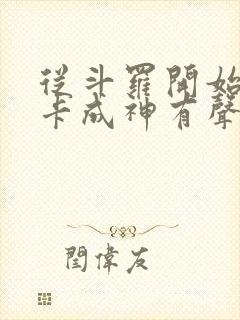 從斗羅開始
卡成神有聲
閏偉友